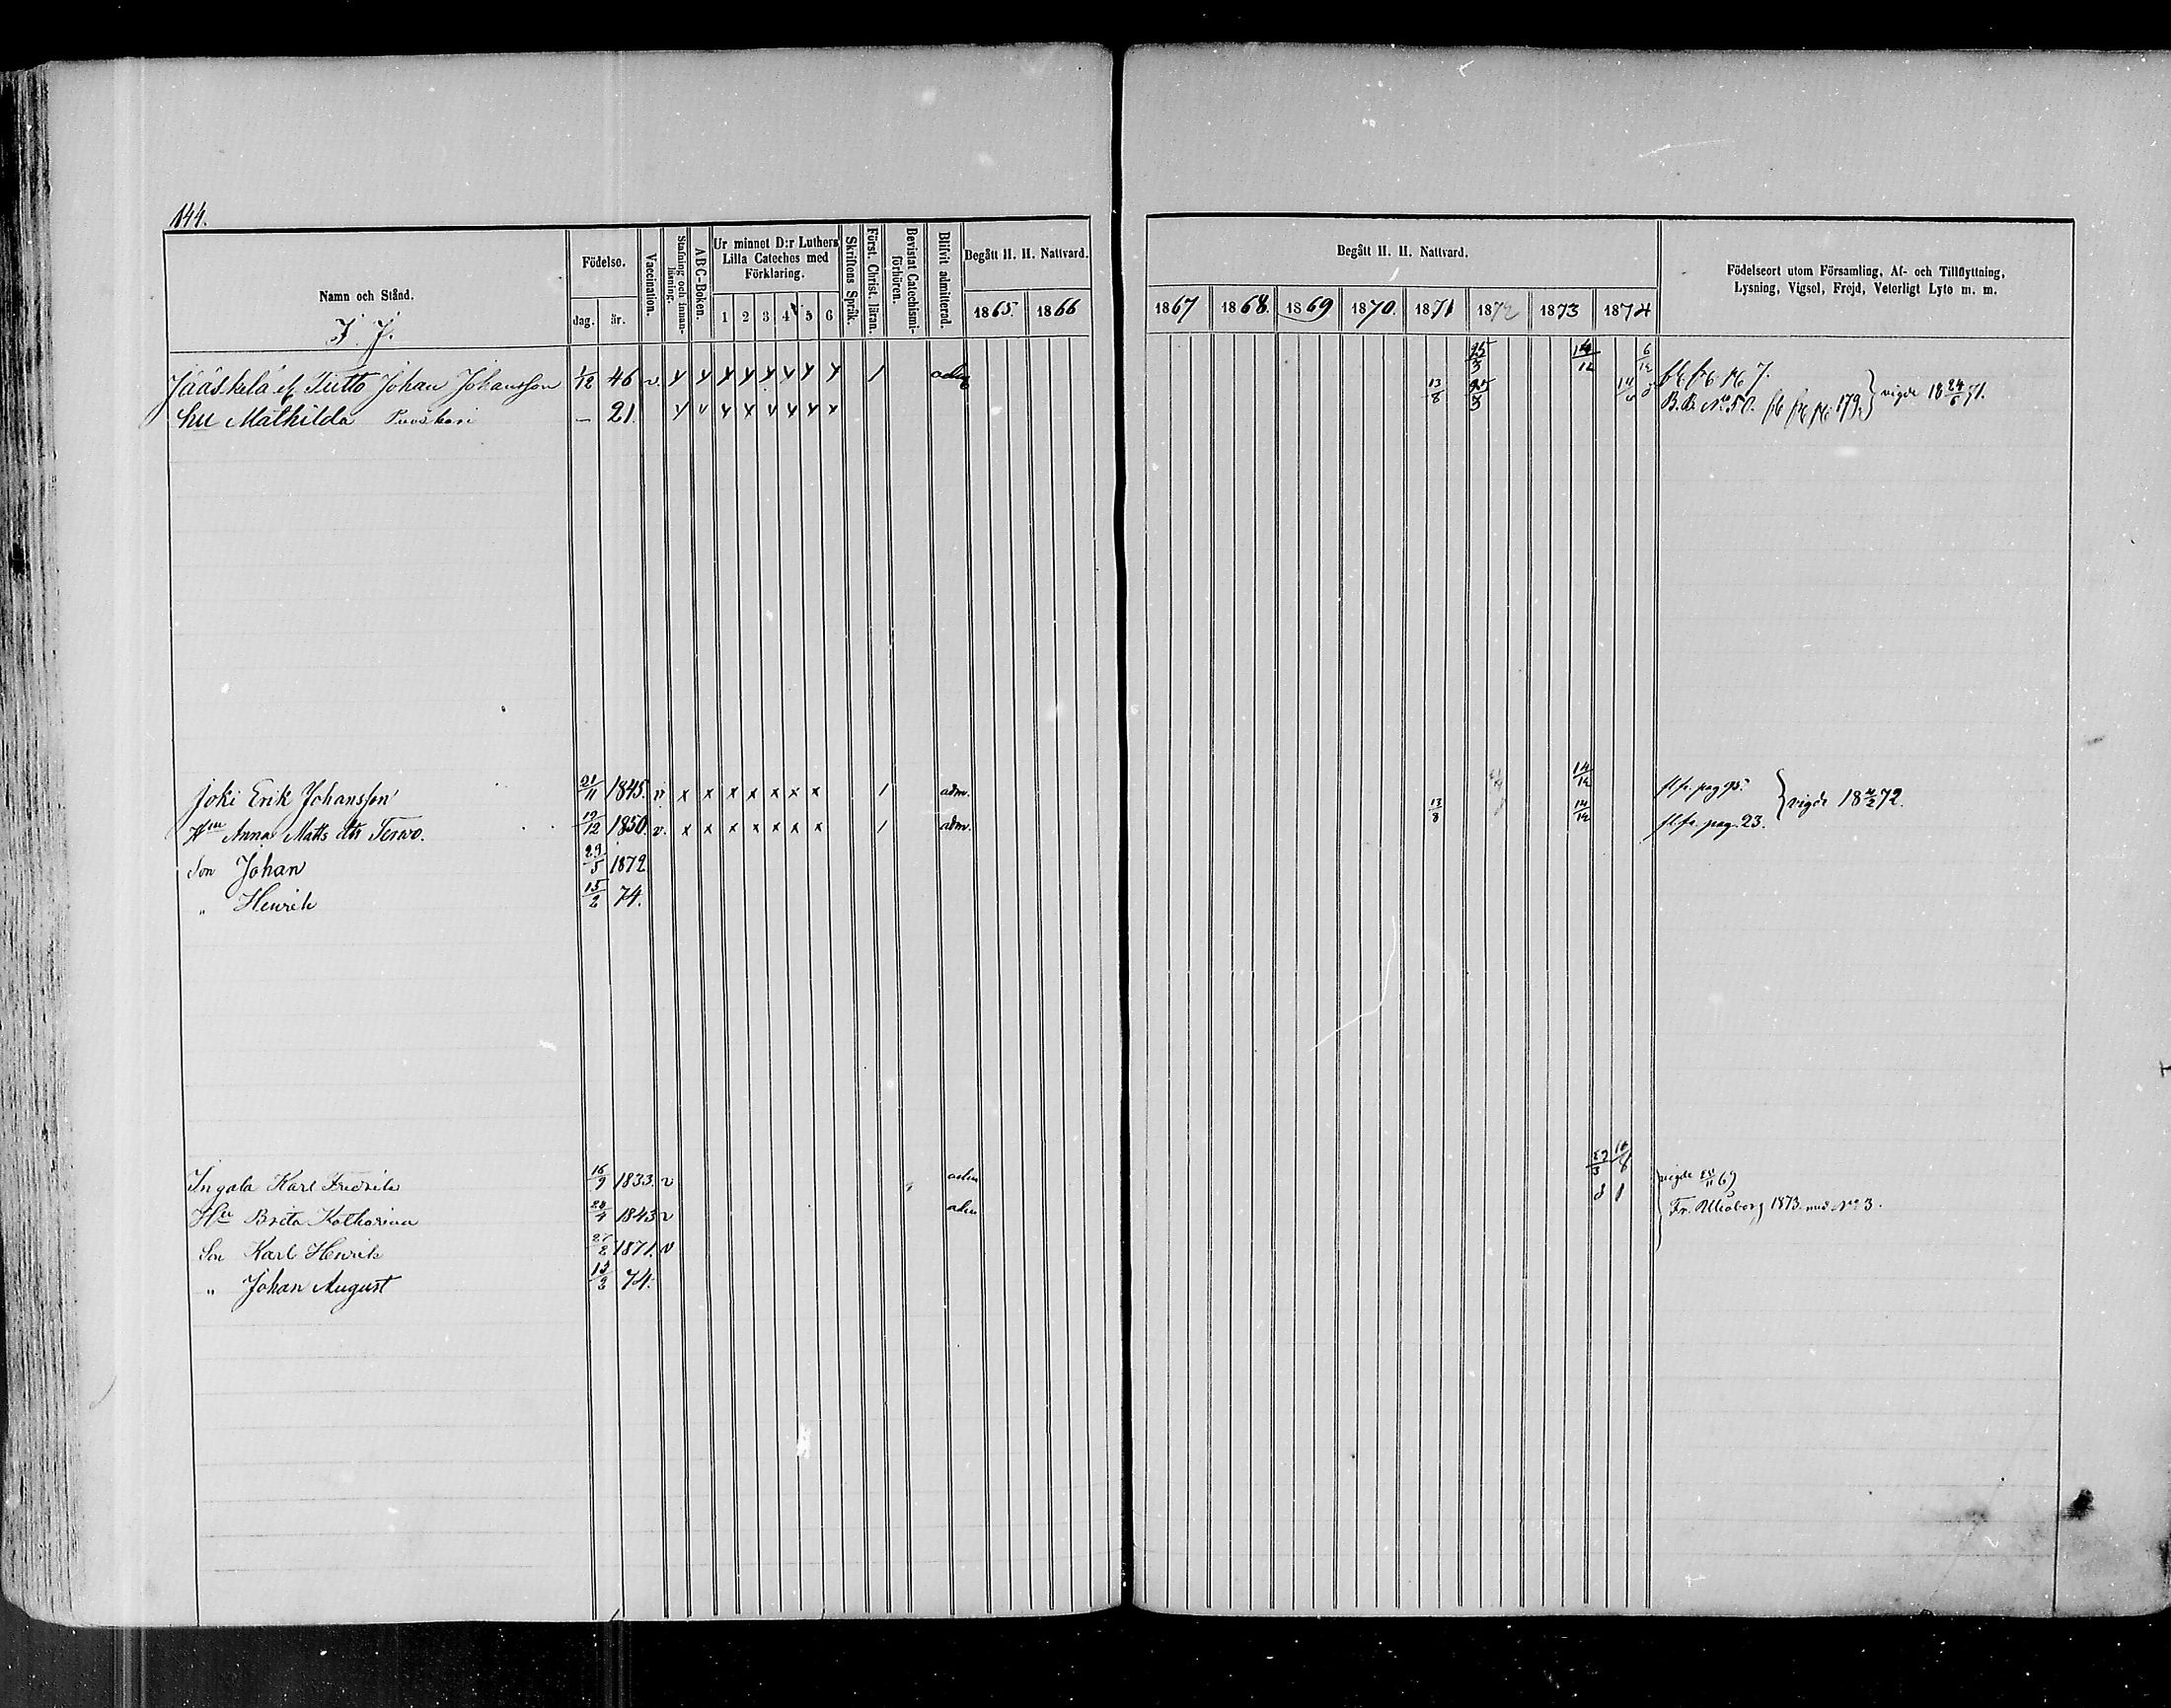 144.
Namn och Stånd.
I. J.
Födelse.
dag. år.
Vaccination.
Stafning och innanläsning.
A B C-Boken.
Ur minnet D:r Luthers Lilla Cateches med Förklaring.
1 2 3 4 5 6
Skriftens Språk.
Först. Christ. läran.
Bevistat Catechismiförhören.
Blifvit admitterad.
Begått H. H. Nattvard.
1865. 1866
Begått H. H. Nattvard.
1867 1868. 1869 1870. 1871 1872 1873 1874
Födelseort utom Församling, Af- och Tillflyttning,
Lysning, Vigsel, Frejd, Veterligt Lyte m. m.
Jääskelä ef Tutto Johan Johansson 1/12 46 v. adm 25/3 14/12 6/12 7.
hu Mathilda — 21. 13/8 25/3 B.B. No 50. 179. } vigde 18 24/6 71.
Joki Erik Johansson 21/11 1845. v x x x x x x x / adm. 14/12 fl. fr. pag 95.
Hu Anna Matts dtr Terwo. 19/12 1850. v. x x x x x x x / adm. 13/8 14/12 fl. fr. pag. 23. } vigde 18 4/2 72.
Son Johan 29/5 1872
" Henrik 15/2 74.
Ingala Karl Fredrik 16/9 1833. v adm vigde 69
Hu Brita Katharina 28/4 1843 v adm Fr. Uleåborg 1873. med No 3.
Son Karl Henrik 27/2 1871. v
" Johan August 15/3 74.